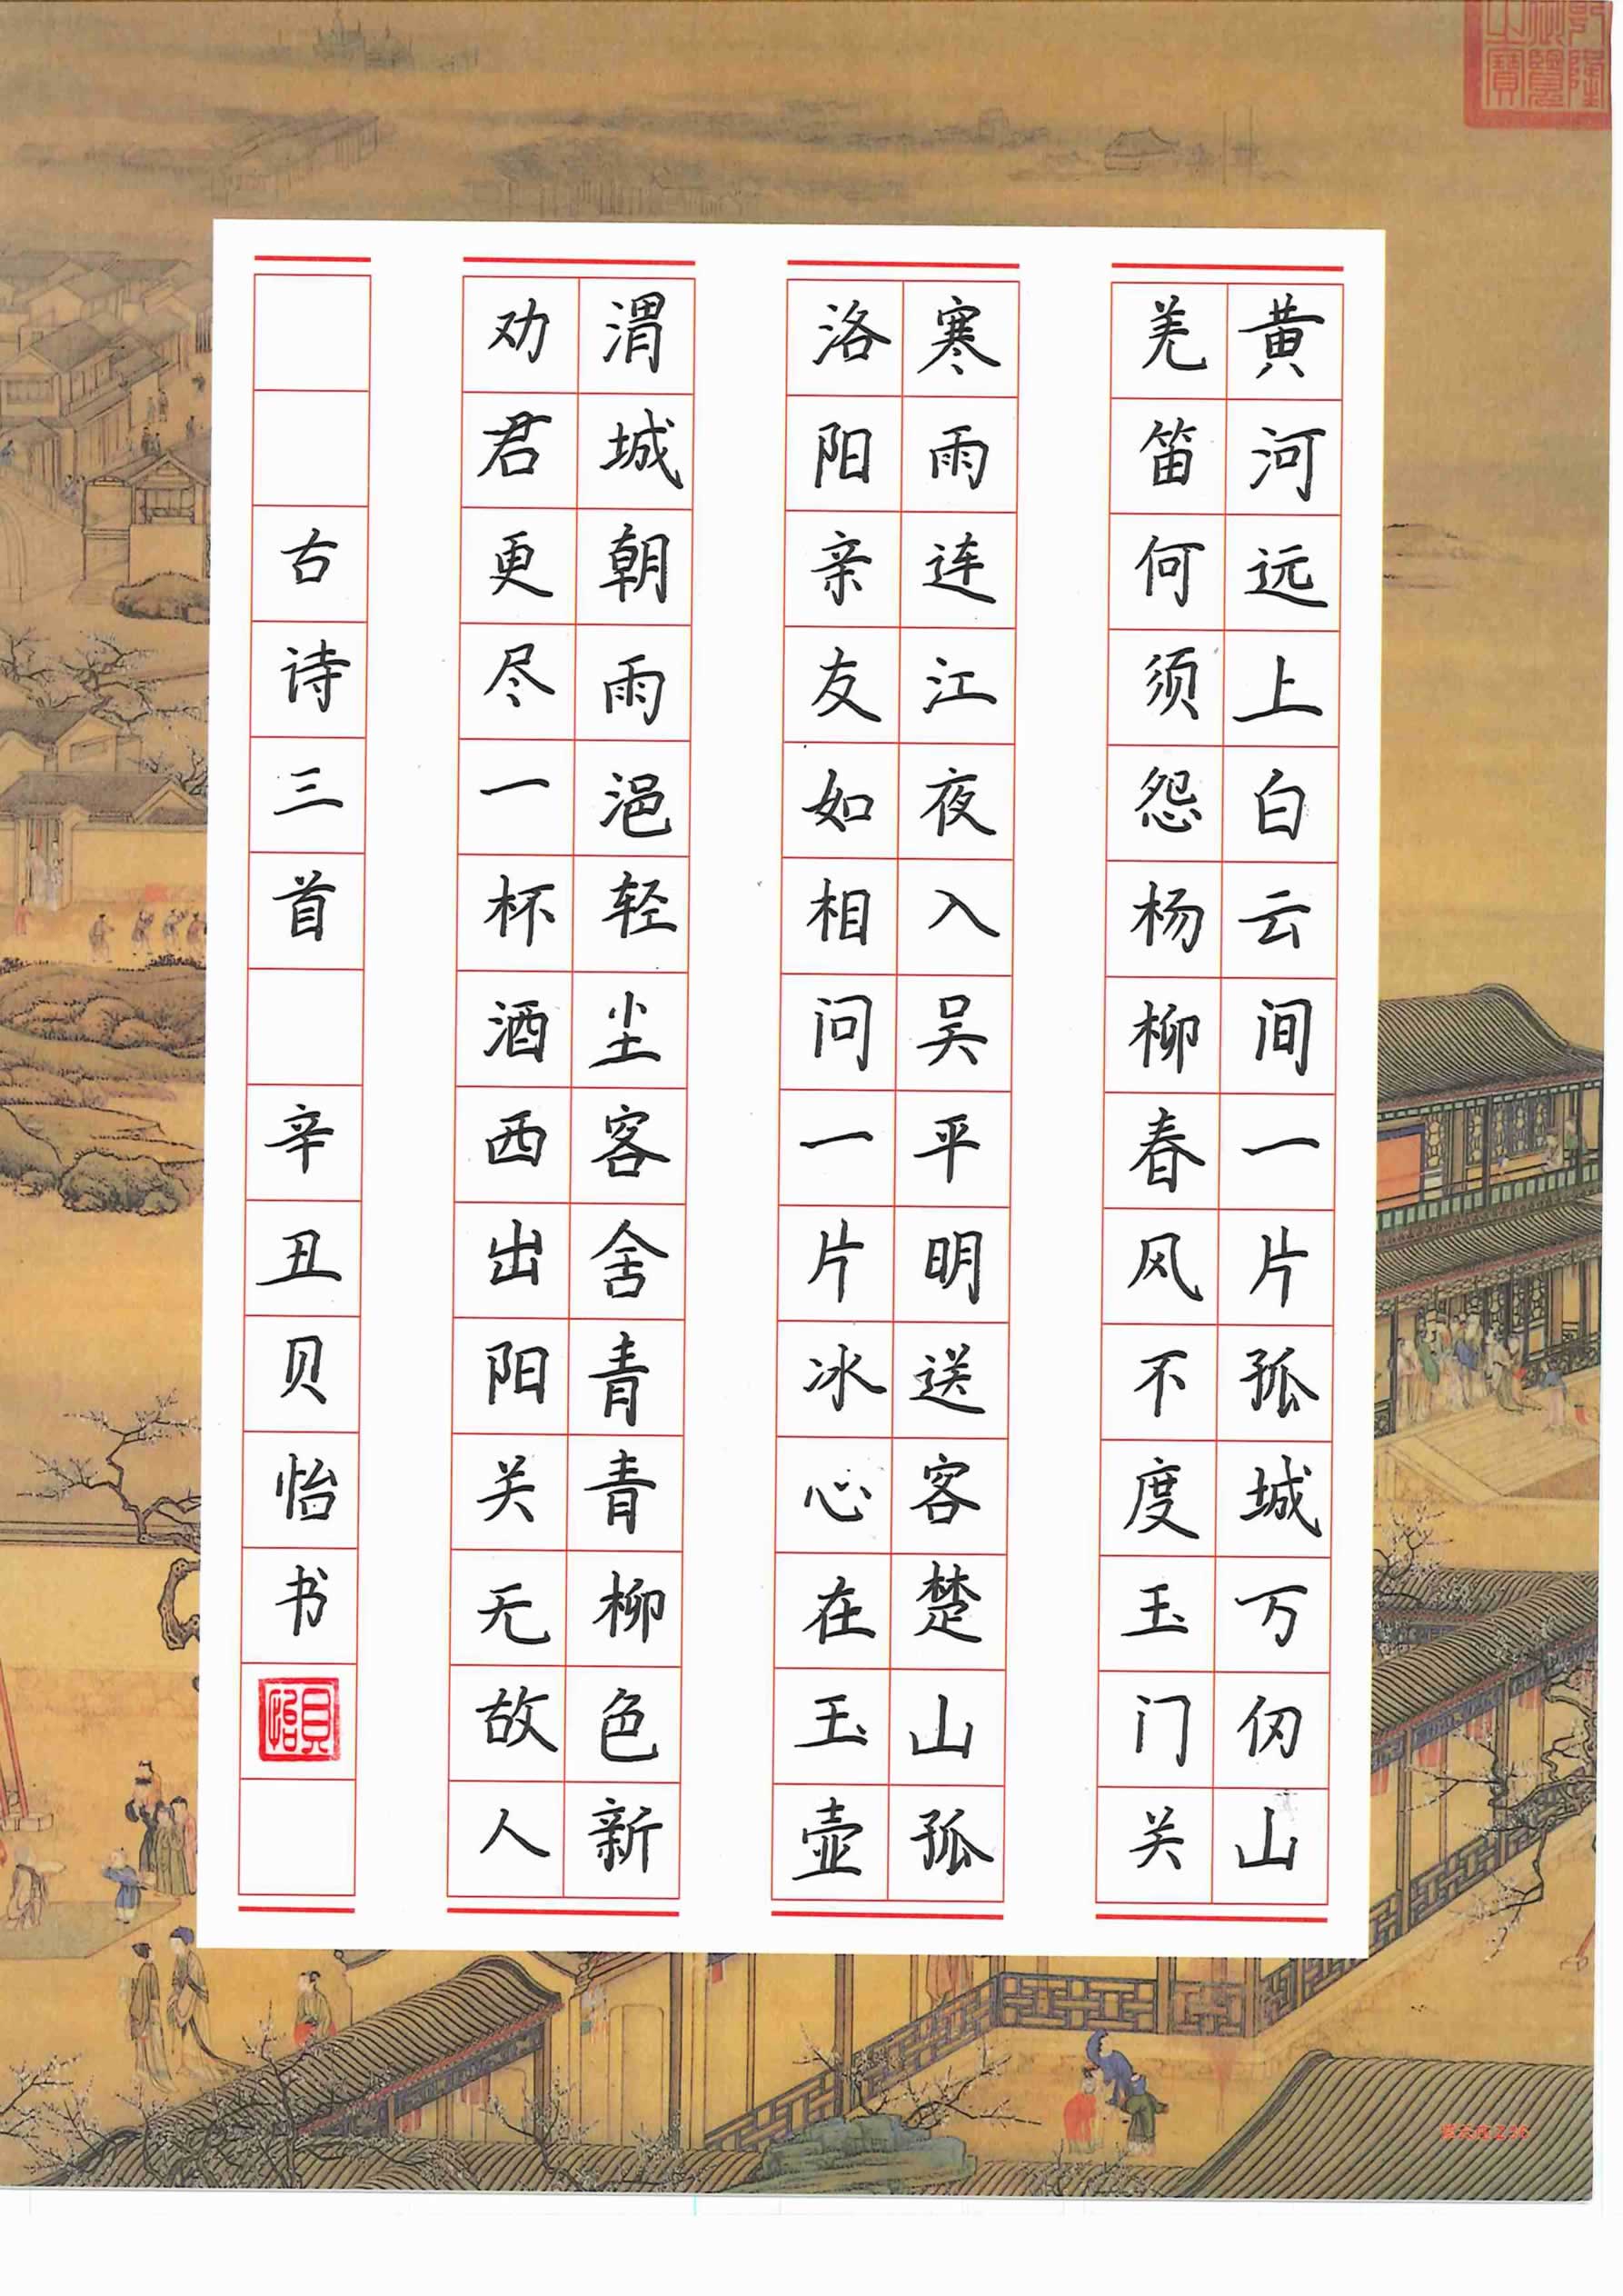 黄河远上白云间一片孤城万仞山
羌笛何须怨杨柳春风不度玉门关
寒雨连江夜入吴平明送客楚山孤
洛阳亲友如相问一片冰心在玉壶
渭城朝雨浥轻尘客舍青青柳色新
劝君更尽一杯酒西出阳关无故人
古诗三首 辛丑贝怡书